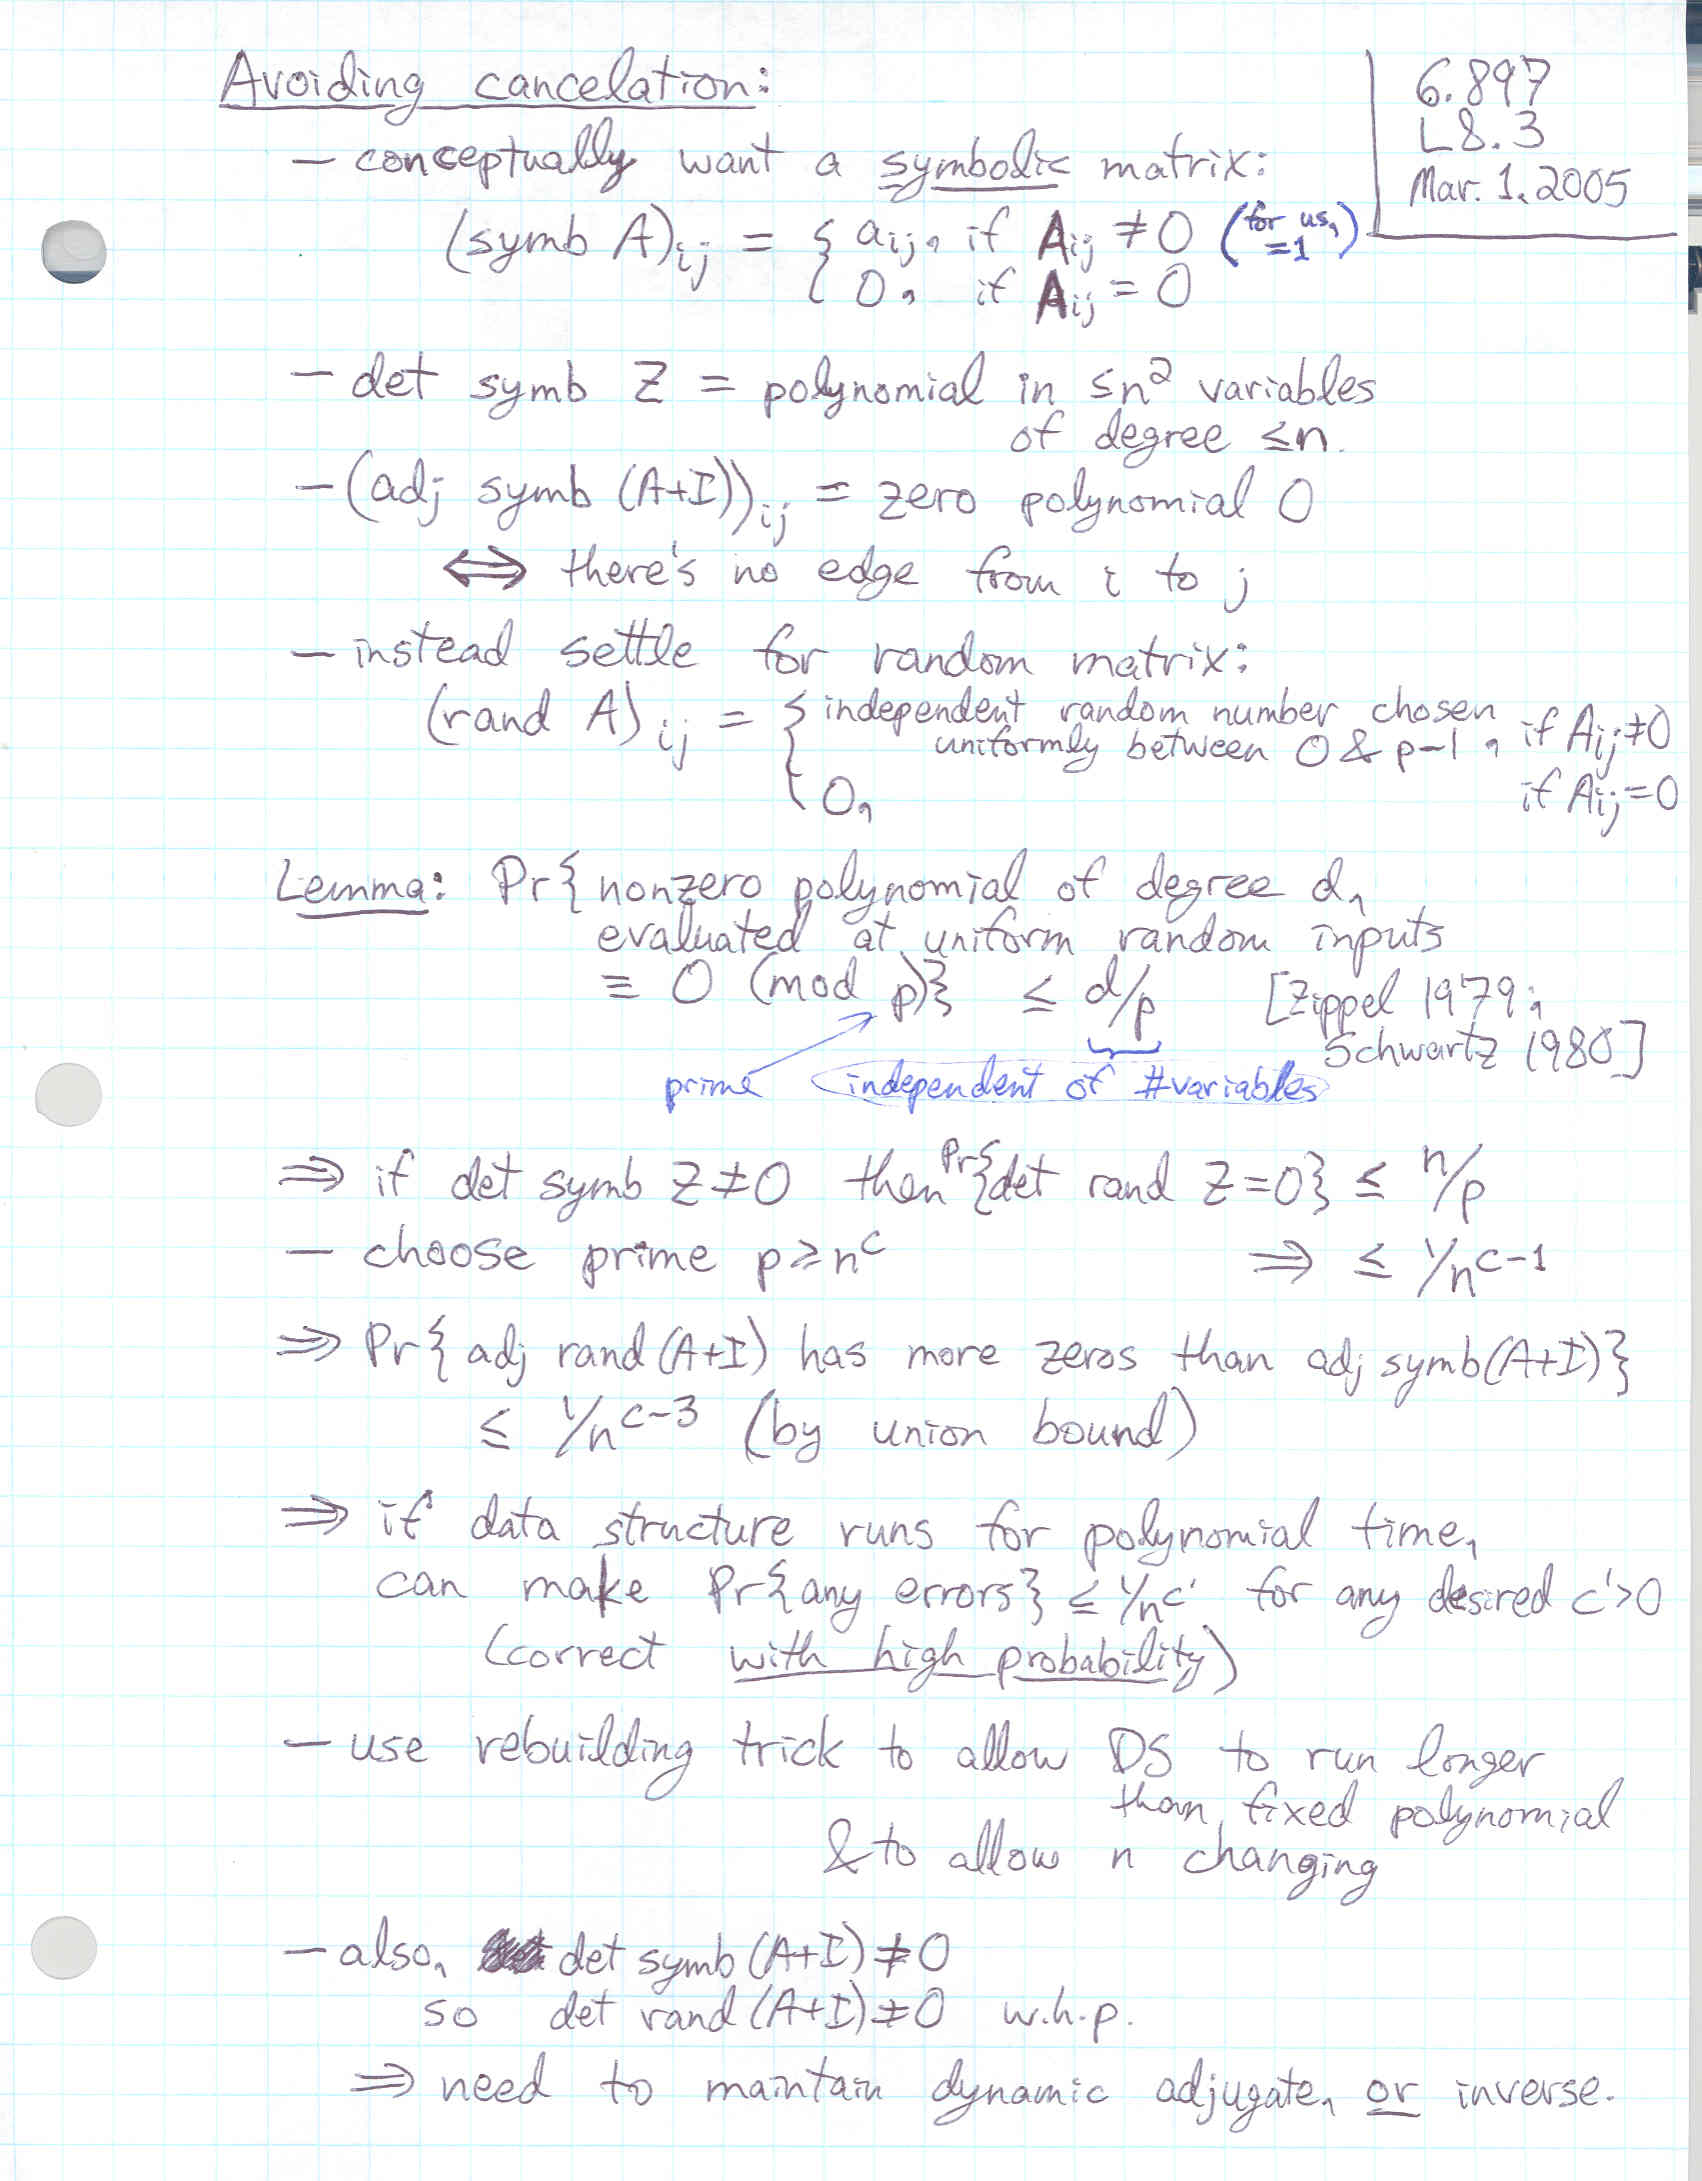 Avoiding cancelation:
6.897
L8.3
Mar. 1, 2005
— conceptually want a symbolic matrix:
(symb A)ij = { aij, if Aij ≠ 0 (for us, =1)
0, if Aij = 0
— det symb Z = polynomial in ≤n² variables
of degree ≤n.
— (adj symb (A+I))ij = zero polynomial 0
⇔ there's no edge from i to j
— instead settle for random matrix:
(rand A)ij = { independent random number chosen
uniformly between 0 & p-1, if Aij ≠ 0
0, if Aij = 0
Lemma: Pr{ nonzero polynomial of degree d,
evaluated at uniform random inputs
≡ 0 (mod p)} ≤ d/p [Zippel 1979;
Schwartz 1980]
prime independent of #variables
⇒ if det symb Z ≠ 0 then Pr{det rand Z = 0} ≤ n/p
— choose prime p ≥ n^c ⇒ ≤ 1/n^(c-1)
⇒ Pr{ adj rand (A+I) has more zeros than adj symb(A+I)}
≤ 1/n^(c-3) (by union bound)
⇒ if data structure runs for polynomial time,
can make Pr{any errors} ≤ 1/n^c' for any desired c'>0
(correct with high probability)
— use rebuilding trick to allow DS to run longer
than fixed polynomial
& to allow n changing
— also, det symb (A+I) ≠ 0
so det rand (A+I) ≠ 0 w.h.p.
⇒ need to maintain dynamic adjugate, or inverse.